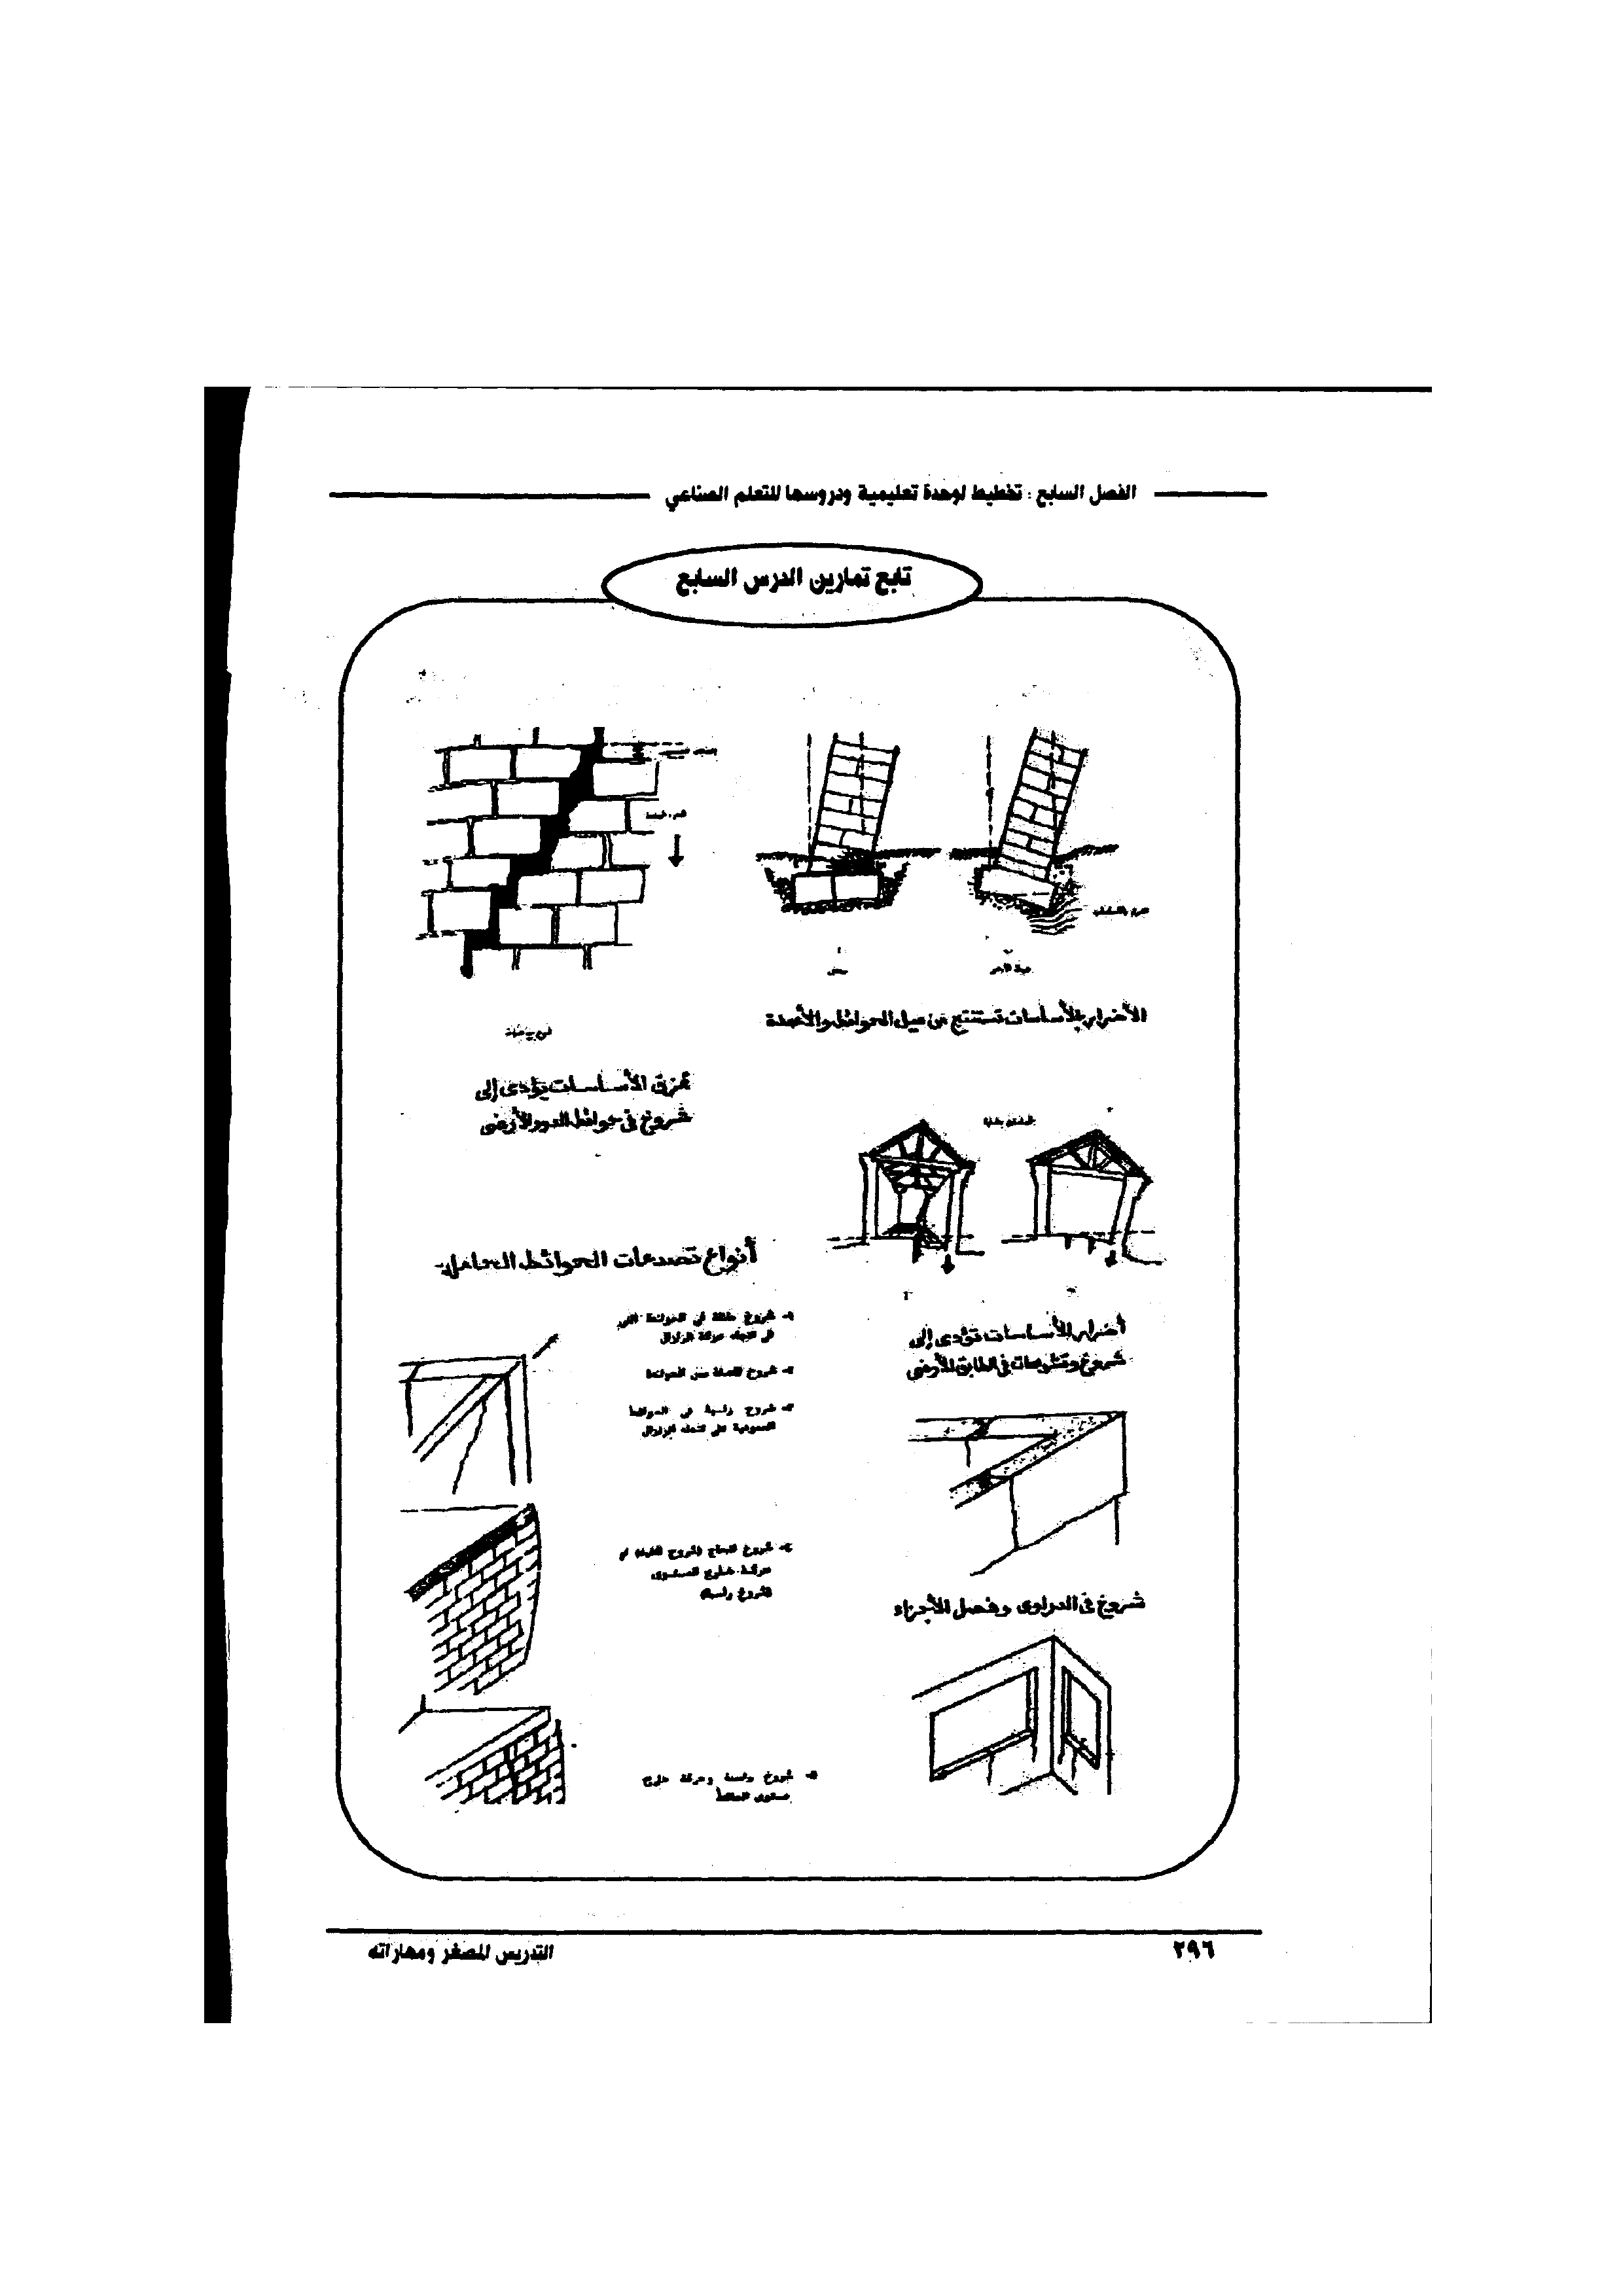 الفصل السابع : تخطيط لوحدة تعليمية ودروسها للتعلم الصناعي
تابع تمارين الدرس السابع
الأضرار بالأساسات تستنتج من ميل الحوائط والأعمدة
تمزق الأساسات يؤدى إلى
شروخ فى حوائط الدور الأرضى
أضرار الأساسات تؤدى إلى
شروخ وتشوهات فى الطابق الأرضى
أنواع تصدعات الحوائط الحاملة
شروخ مائلة فى الحوائط التى
فى اتجاه حركة الزلزال
شروخ رأسية فى الحوائط
العمودية على اتجاه الزلزال
شروخ فى الدراوى وفصل الأجزاء
حركة خارج المستوى
(شروخ رأسية)
شروخ رأسية وحركة خارج
مستوى الحائط
التدريس المصغر ومهاراته
٢٩٦